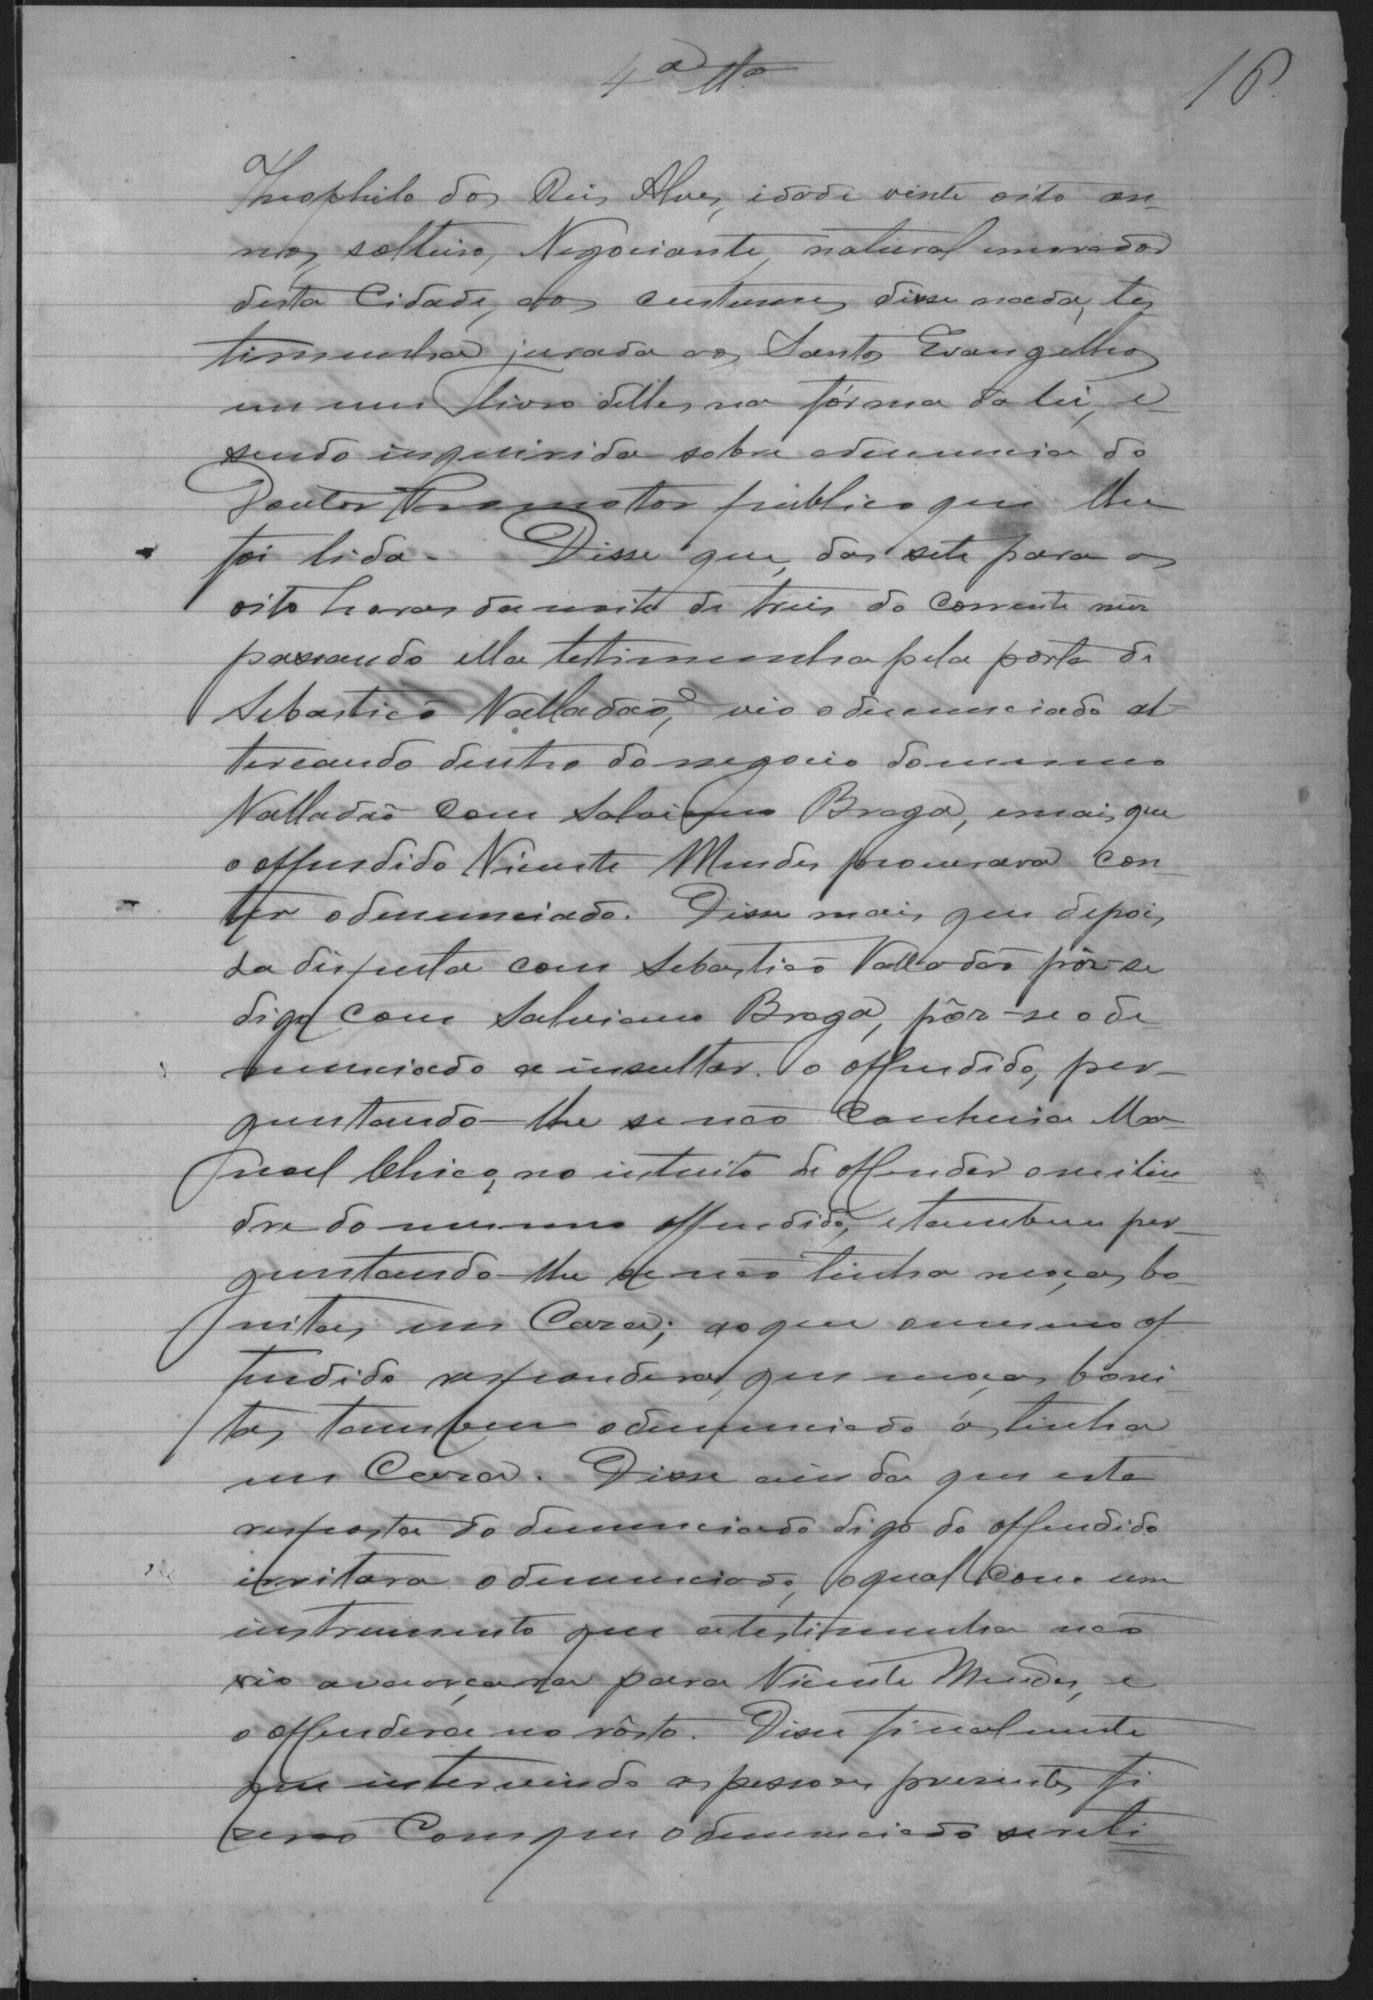 4ª Ttª
16
Theophilo dos Reis Alves, idade vinte oito an-
nos, solteiro, Negociante, natural e morador
desta Cidade, aos custumes disse nada, tes
timunha jurada aos Santos Evangelhos
em um livro delles na fórma da lei, e
sendo inquirida sobre a denuncia do
Doutor Promotor publico que lhe
foi lida. Disse que, das sete para as
oito horas da noite de treis do corrente mez
passando ella testimunha pela porta de
Sebastião Valladão, vio o denunciado al-
tercando dentro do negocio do mesmo
Valladão com Salviano Braga, e mais que
o offendido Vicente Mendes procurava con-
ter o denunciado. Disse mais que depois
da disputa com Sebastião Valladão pôr-se
digo com Salviano Braga, pôr-se o de-
nunciado a insultar o offendido, per-
guntando-lhe se não conhecia Ma-
noel Chico, no intuito de offender o melin-
dre do mesmo offendido, e tambem per-
guntando-lhe se não tinha moças bo-
nitas em Caza; ao que o mesmo of-
fendido respondera, que moças boni-
tas tambem o denunciado ás tinha
em Caza. Disse ainda que esta
resposta do denunciado digo do offendido
irritara o denunciado, o qual com um
instrumento que a testimunha não
vio avançara para Vicente Mendes, e
o offendera no rôsto. Disse finalmente
que intervindo as pessoas presentes fi
zerão com que o denunciado se reti-